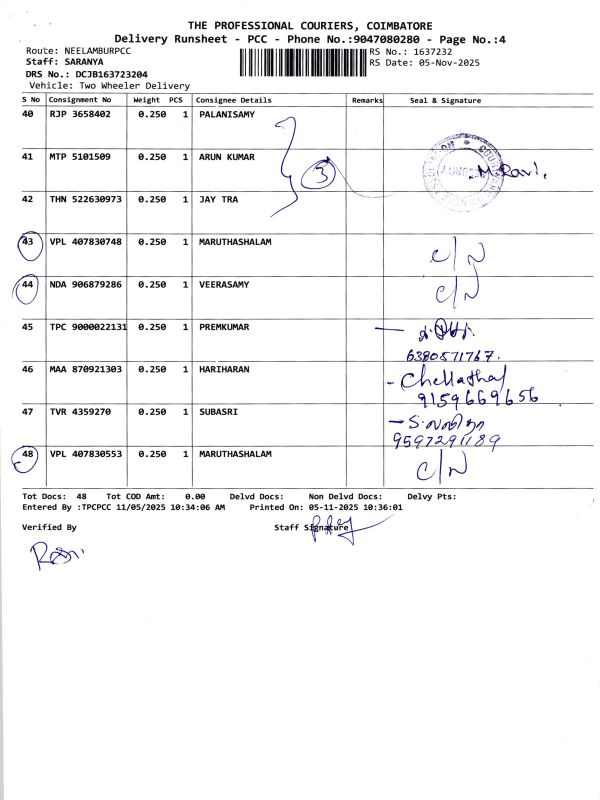 THE PROFESSIONAL COURIERS, COIMBATORE
Delivery Runsheet - PCC - Phone No.:9047080280 - Page No.:4
Route: NEELAMBURPCC RS No.: 1637232
Staff: SARANYA RS Date: 05-Nov-2025
DRS No.: DCJB163723204
Vehicle: Two Wheeler Delivery
S No Consignment No Weight PCS Consignee Details Remarks Seal & Signature
40 RJP 3658402 0.250 1 PALANISAMY
41 MTP 5101509 0.250 1 ARUN KUMAR 3 M.Ravi.
42 THN 522630973 0.250 1 JAY TRA
43 VPL 407830748 0.250 1 MARUTHASHALAM C/N
44 NDA 906879286 0.250 1 VEERASAMY C/N
45 TPC 9000022131 0.250 1 PREMKUMAR
6380571767.
46 MAA 870921303 0.250 1 HARIHARAN - Chellathal
9159669656
47 TVR 4359270 0.250 1 SUBASRI
9597291189
48 VPL 407830553 0.250 1 MARUTHASHALAM C/N
Tot Docs: 48 Tot COD Amt: 0.00 Delvd Docs: Non Delvd Docs: Delvy Pts:
Entered By :TPCPCC 11/05/2025 10:34:06 AM Printed On: 05-11-2025 10:36:01
Verified By Staff Signature